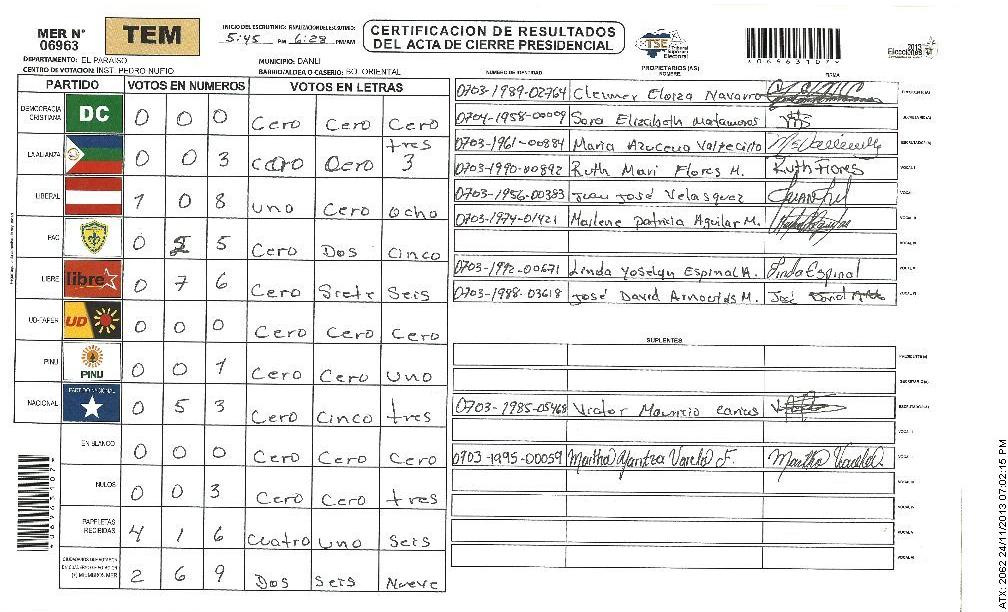 MER N° 06963
TEM
INICIO DEL ESCRUTINIO: FINALIZACION DEL ESCRUTINIO:
5:45 PM 6:28 PM/AM
CERTIFICACION DE RESULTADOS
DEL ACTA DE CIERRE PRESIDENCIAL
TSE Tribunal Supremo Electoral
4069631074
2013
Elecciones
DEPARTAMENTO: EL PARAISO
MUNICIPIO: DANLI
CENTRO DE VOTACION: INST. PEDRO NUFIO
BARRIO/ALDEA O CASERIO: BO. ORIENTAL
PARTIDO VOTOS EN NUMEROS VOTOS EN LETRAS
DEMOCRACIA CRISTIANA DC 0 0 0 Cero Cero Cero
LA ALIANZA 0 0 3 cero Cero tres 3
LIBERAL 1 0 8 uno Cero ocho
PAC 0 2 5 Cero Dos Cinco
LIBRE libre 0 7 6 Cero Siete Seis
UD-FAPER UD 0 0 0 Cero Cero Cero
PINU PINU 0 0 1 Cero Cero uno
NACIONAL PARTIDO NACIONAL 0 5 3 Cero Cinco tres
EN BLANCO 0 0 0 Cero Cero Cero
NULOS 0 0 3 Cero Cero tres
PAPELETAS RECIBIDAS 4 1 6 Cuatro uno Seis
2 6 9 Dos Seis Nueve
NUMERO DE IDENTIDAD PROPIETARIOS (AS) NOMBRE FIRMA
0703-1989-02764 Clermer Eloiza Navarro
0704-1958-00009 Sara Elizabeth Matamoros
0703-1961-00884 Maria Azucena
0703-1990-00892 Ruth Mari Flores M. Ruth Flores
0703-1956-00383 Juan José Velasquez
0703-1974-01421 Marlene Patricia Aguilar M.
0703-1992-00671 Linda Yoselyn Espinal A. Linda Espinal
0703-1988-03618 José David M. José David
SUPLENTES
0703-1985-05468 Victor Mauricio
0703-1995-00059 Martha Yaritza Varela F. Martha Varela
4069631074
ATX: 2062 24/11/2013 07:02:15 PM